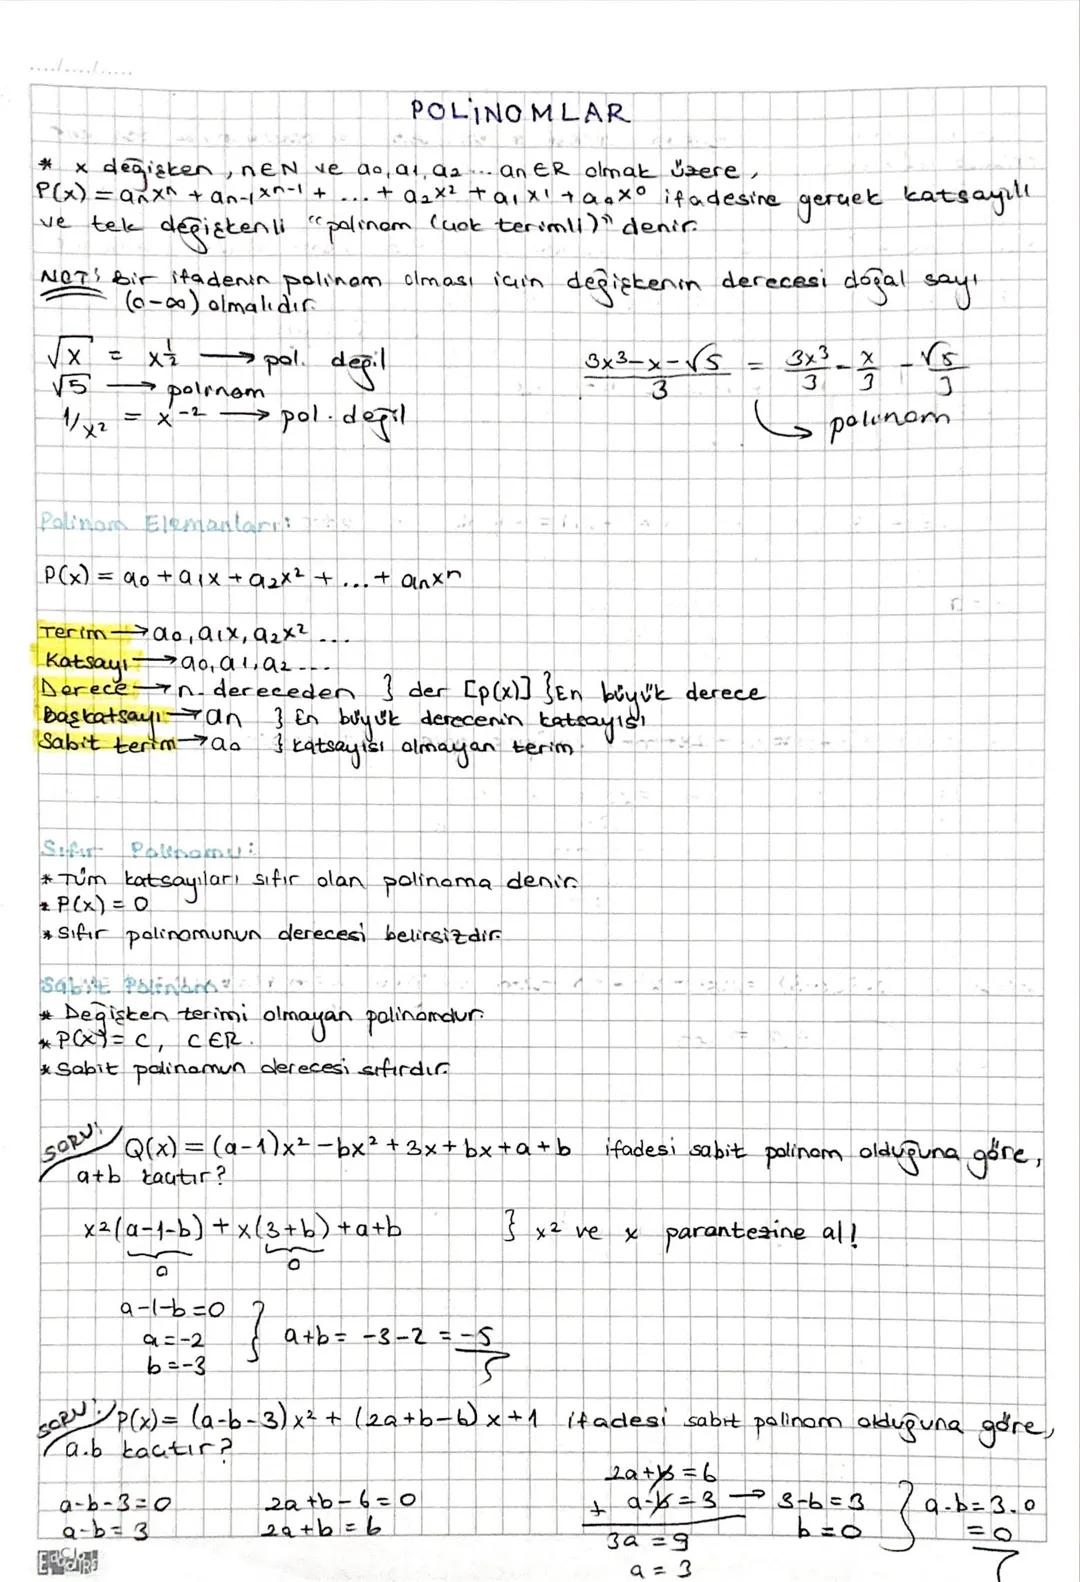 POLİNOMLAR
* x değişken, n∈N ve a₀, a₁, a₂ ... aₙ∈R olmak üzere,
P(x) = aₙxⁿ + aₙ₋₁xⁿ⁻¹ + ... + a₂x² + a₁x¹ + a₀x⁰ ifadesine gerçek katsayılı
ve tek değişkenli "polinom (çok terimli)" denir.
NOT: Bir ifadenin polinom olması için değişkenin derecesi doğal sayı
(0-∞) olmalıdır.
√x = x^½ → pol. değil
√5 → polinom
1/x² = x⁻² → pol. değil
(3x³-x-√5)/3 = 3x³/3 - x/3 - √5/3
↳ polinom
Polinom Elemanları:
P(x) = a₀ + a₁x + a₂x² + ... + aₙxⁿ
Terim → a₀, a₁x, a₂x² ...
Katsayı → a₀, a₁, a₂ ...
Derece → n. dereceden } der [p(x)] } En büyük derece
Başkatsayı → aₙ } En büyük derecenin katsayısı
Sabit terim → a₀ } katsayısı olmayan terim
Sıfır Polinomu:
* Tüm katsayıları sıfır olan polinoma denir.
* P(x) = 0
* Sıfır polinomunun derecesi belirsizdir.
Sabit Polinom:
* Değişken terimi olmayan polinomdur.
* P(x) = c, c∈R.
* Sabit polinomun derecesi sıfırdır.
SORU: Q(x) = (a-1)x² - bx² + 3x + bx + a + b ifadesi sabit polinom olduğuna göre,
a+b kaçtır?
x²(a-1-b) + x(3+b) + a+b } x² ve x parantezine al!
0 0
a-1-b=0
a=-2 } a+b = -3-2 = -5
b=-3
SORU: P(x) = (a-b-3)x² + (2a+b-6)x+1 ifadesi sabit polinom olduğuna göre,
a.b kaçtır?
a-b-3=0
a-b=3
2a+b-6=0
2a+b=6
2a+b=6
+ a-b=3 → 3-b=3
3a=9
a=3
b=0
} a.b=3.0
=0